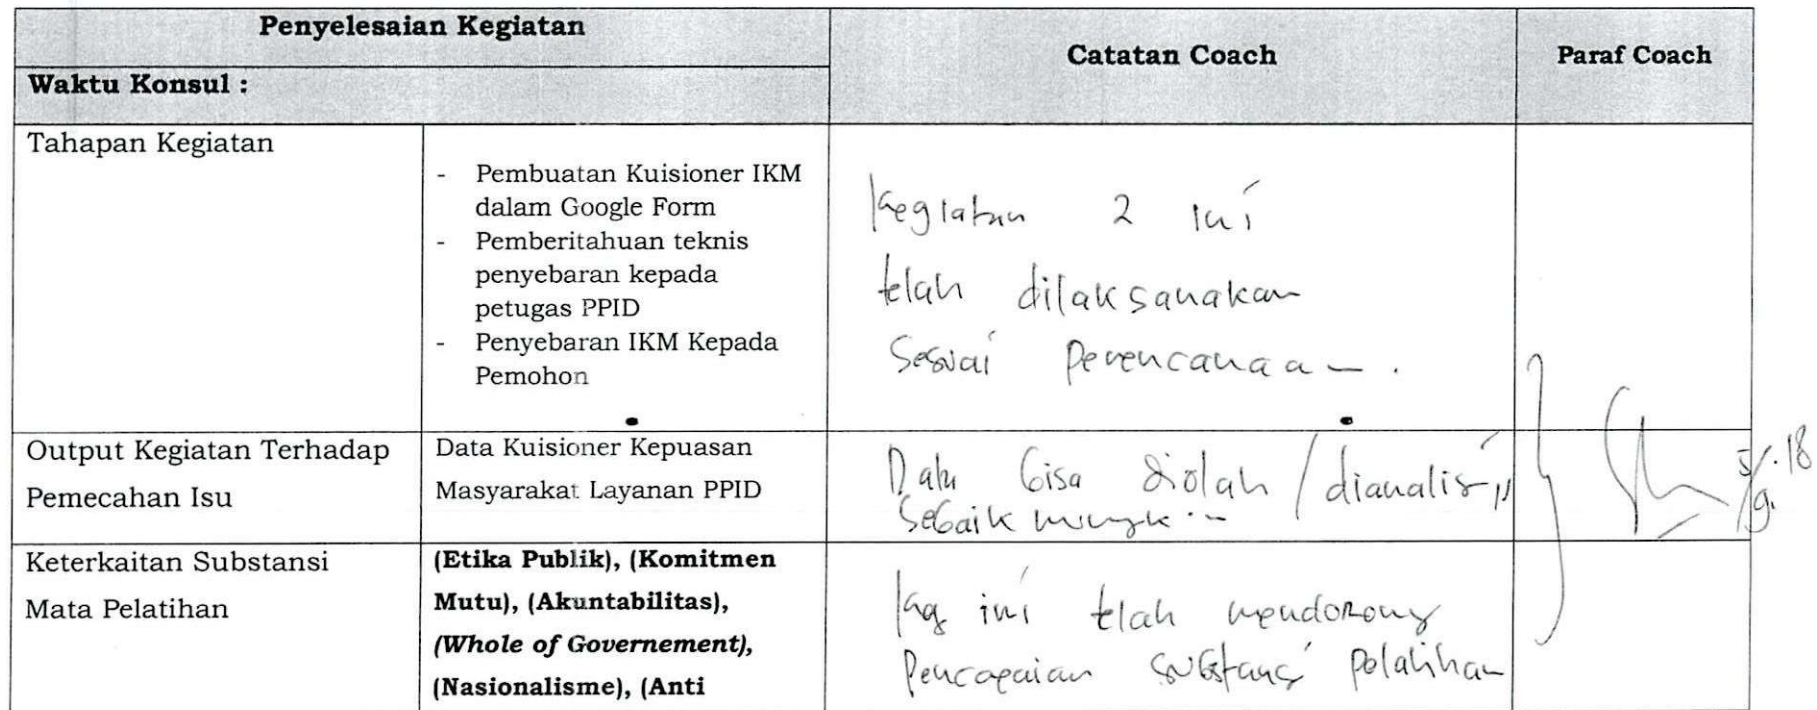 Penyelesaian Kegiatan
Catatan Coach
Paraf Coach
Waktu Konsul :
Tahapan Kegiatan
- Pembuatan Kuisioner IKM
dalam Google Form
- Pemberitahuan teknis
penyebaran kepada
petugas PPID
- Penyebaran IKM Kepada
Pemohon
Kegiatan 2 ini
telah dilaksanakan
Sesuai Perencanaan.
Output Kegiatan Terhadap
Pemecahan Isu
Data Kuisioner Kepuasan
Masyarakat Layanan PPID
Data bisa diolah / dianalisis
Sebaik mungkin
5/9.18
Keterkaitan Substansi
Mata Pelatihan
(Etika Publik), (Komitmen
Mutu), (Akuntabilitas),
(Whole of Governement),
(Nasionalisme), (Anti
Keg ini telah mendorong
Pencapaian substansi pelatihan